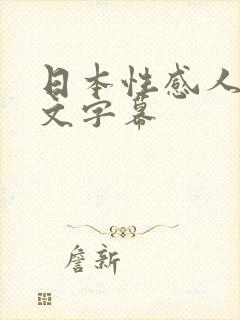 日本性感人
文字幕
詹新